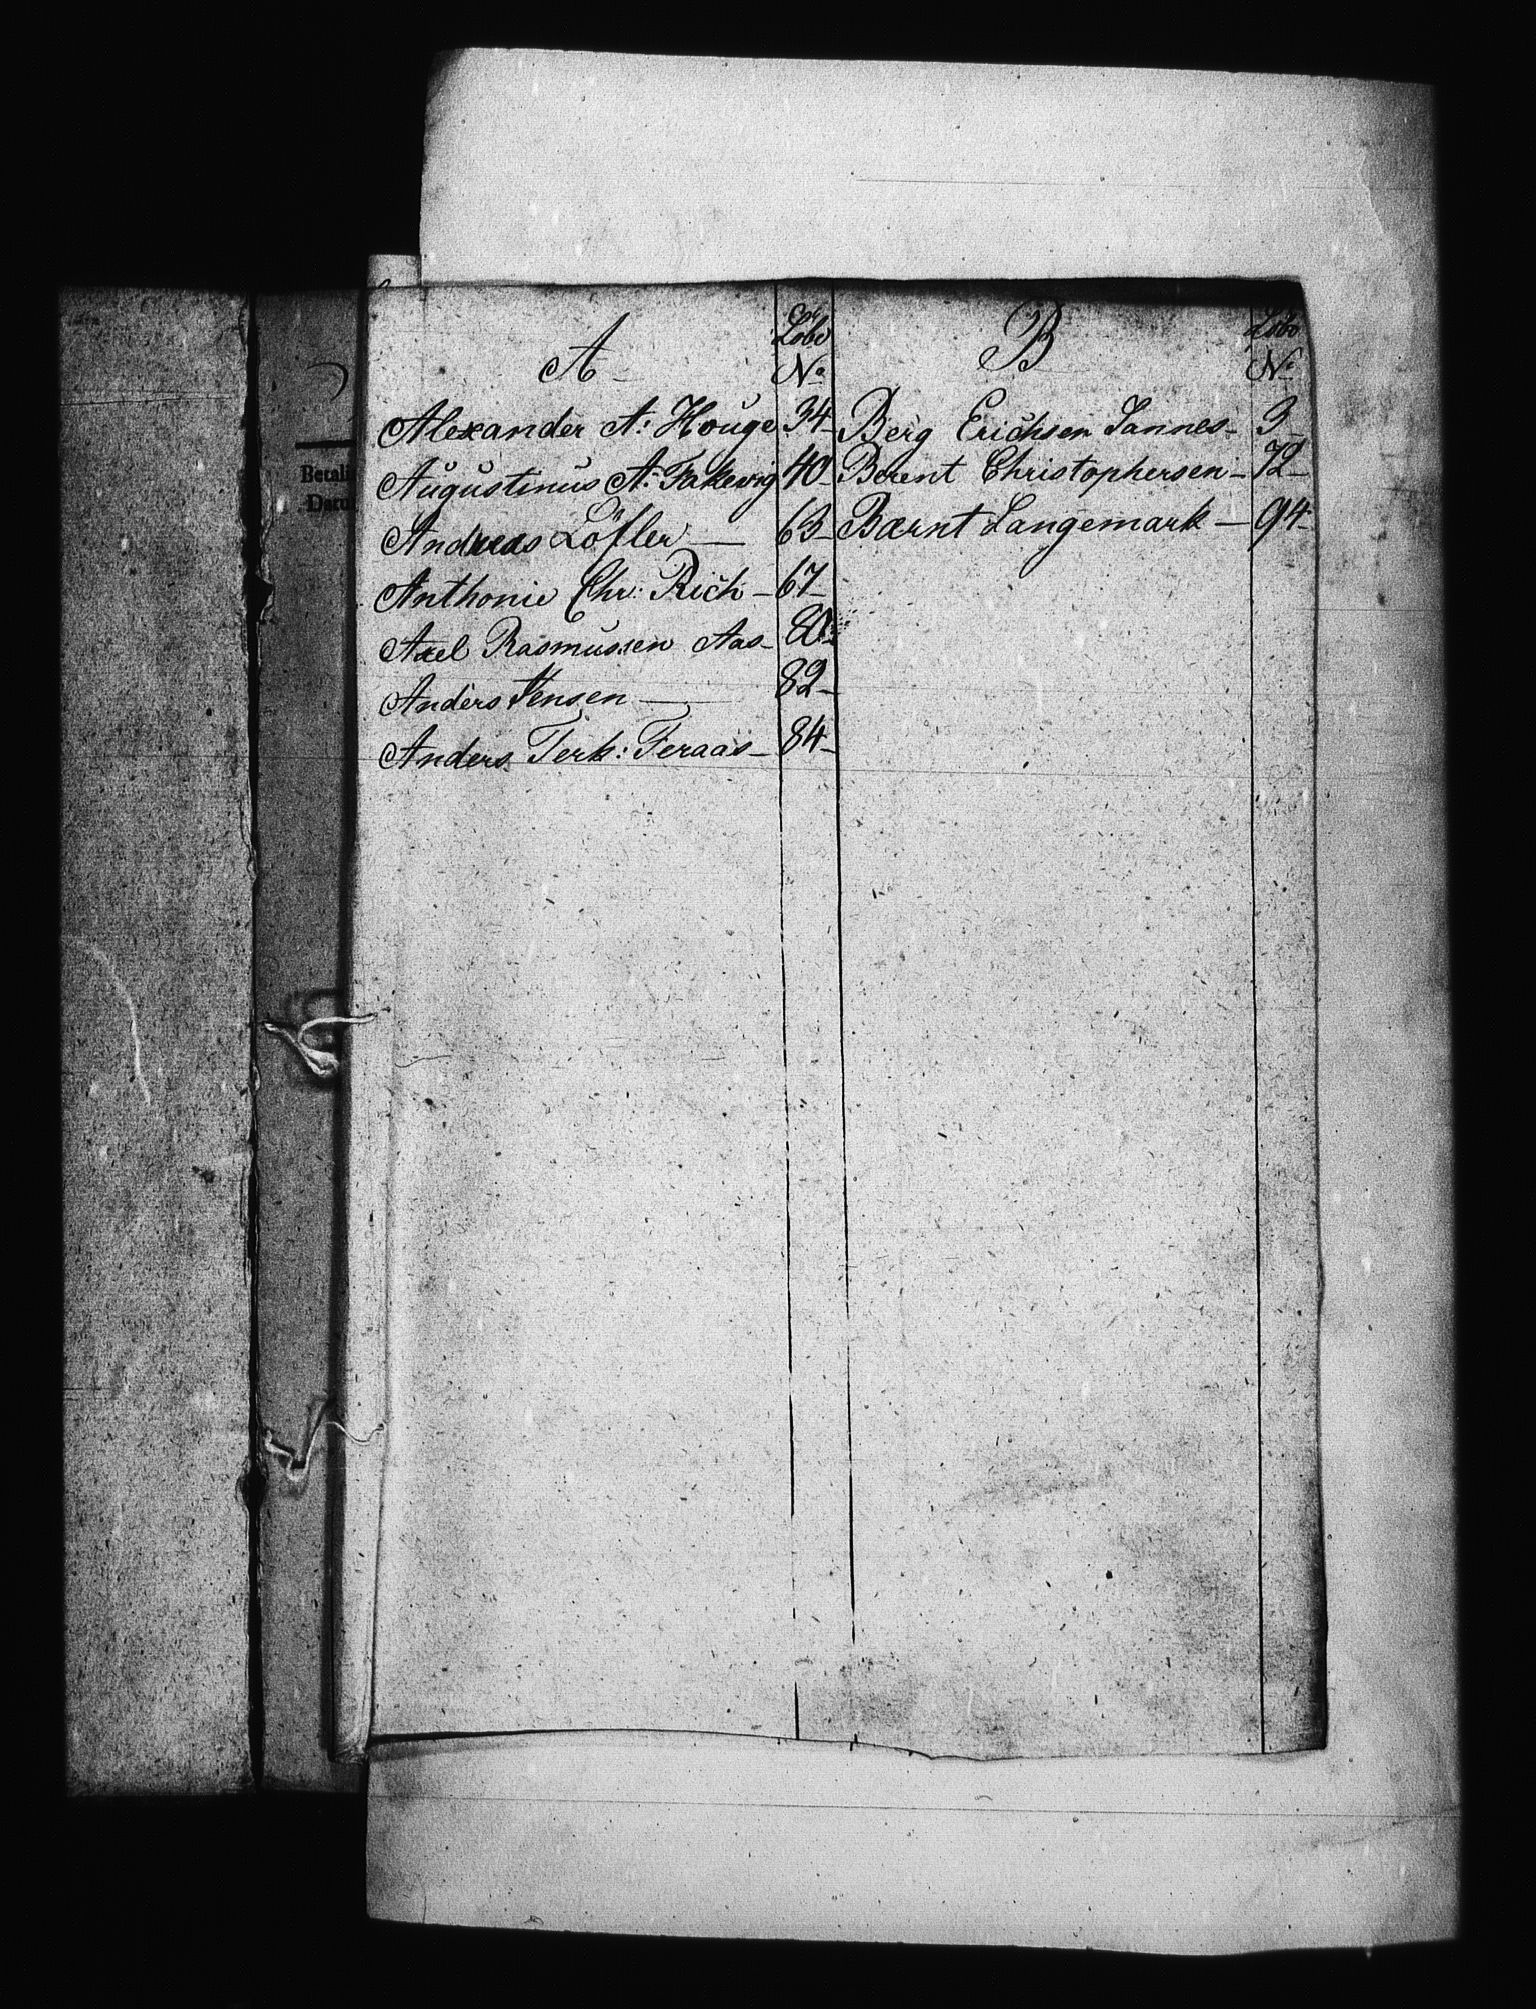 A
Löbe
No
Alexander A: Houge 34
Augustinus A: Fakevig 40
Andreas Löfler 63
Anthonie Chr: Rich 67
Axel Rasmussen Aas 80
Anders Jensen 82
Anders Terk: Feraas 84
B
Löbe
No
Berg Erichsen Sannes 3
Berent Christophersen 72
Bærnt Langemark 94
Betali
Datu